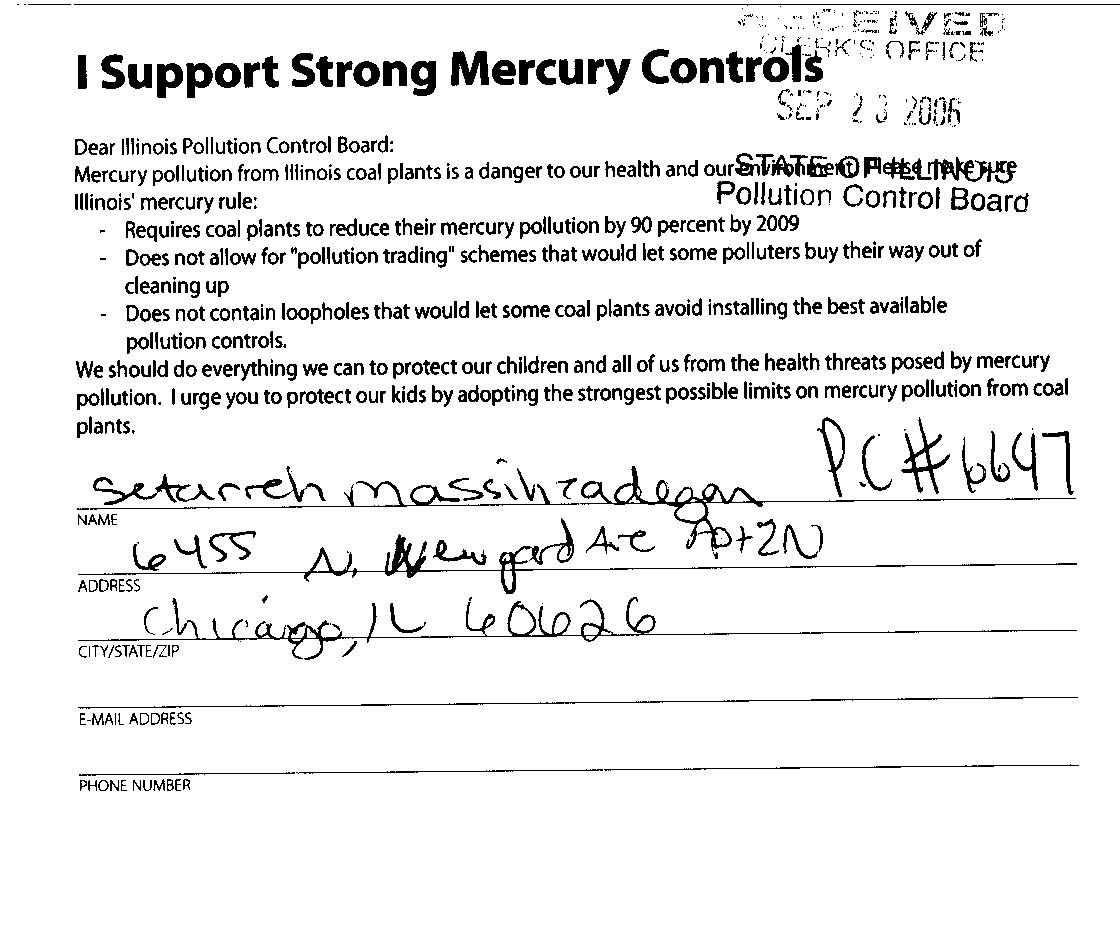 RECEIVED
CLERK'S OFFICE
I Support Strong Mercury Controls
SEP 23 2006
Dear Illinois Pollution Control Board:
Mercury pollution from Illinois coal plants is a danger to our health and our environment. Please make sure
STATE OF ILLINOIS
Illinois' mercury rule:
Pollution Control Board
- Requires coal plants to reduce their mercury pollution by 90 percent by 2009
- Does not allow for "pollution trading" schemes that would let some polluters buy their way out of
cleaning up
- Does not contain loopholes that would let some coal plants avoid installing the best available
pollution controls.
We should do everything we can to protect our children and all of us from the health threats posed by mercury
pollution. I urge you to protect our kids by adopting the strongest possible limits on mercury pollution from coal
plants.
P.C#6647
Setarreh massihzadegan
NAME
6455 N. Newgard Ave Apt 2N
ADDRESS
Chicago, IL 60626
CITY/STATE/ZIP
E-MAIL ADDRESS
PHONE NUMBER